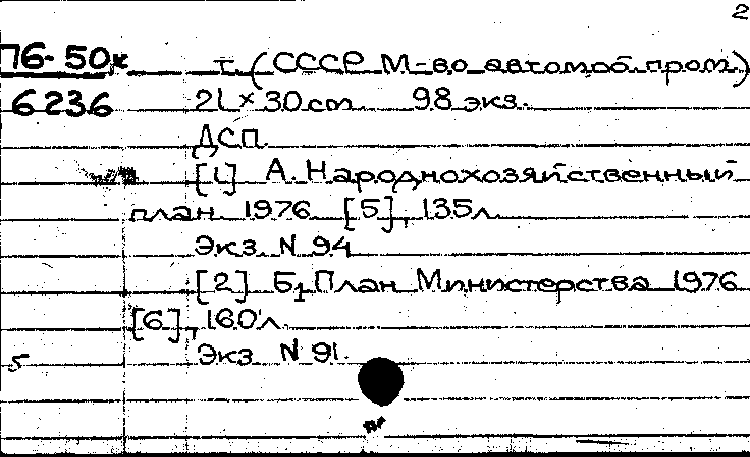 2
П6-50к т. (СССР М-во автомоб. пром.)
6236 21 × 30 cm 98 экз.
ДСП.
[1] А. Народнохозяйственный
план 1976 [5], 135 л.
Экз. N 94
[2] Б, План Министерства 1976
[6], 160 л.
5 Экз. N 91.